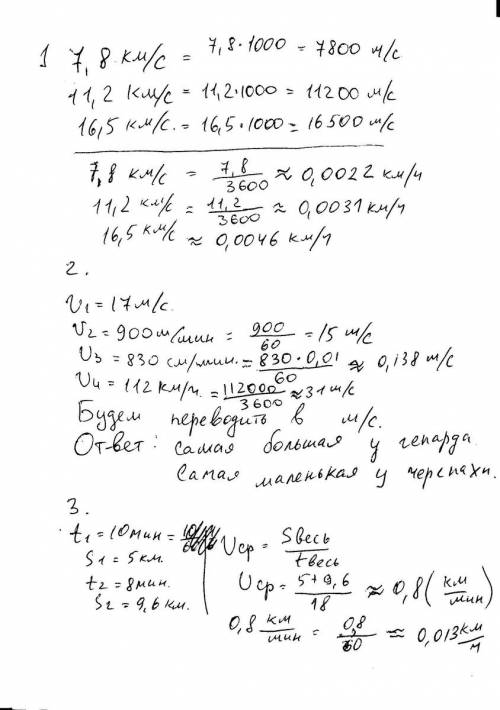 1 7,8 км/с = 7,8·1000 = 7800 м/с
11,2 км/с = 11,2·1000 = 11200 м/с
16,5 км/с. = 16,5·1000 = 16500 м/с
7,8 км/с = 7,8/3600 ≈ 0,0022 км/ч
11,2 км/с = 11,2/3600 ≈ 0,0031 км/ч
16,5 км/с ≈ 0,0046 км/ч
2.
υ1 = 17 м/с.
υ2 = 900 м/мин = 900/60 = 15 м/с
υ3 = 830 см/мин. = 830·0,01/60 ≈ 0,138 м/с
υ4 = 112 км/ч. = 112000/3600 ≈ 31 м/с
Будем переводить в м/с.
Ответ: самая большая у гепарда
Самая маленькая у черепахи.
3.
t1 = 10мин =
S1 = 5 км.
t2 = 8мин.
S2 = 9,6 км.
υср = Sвесь/tвесь
υср = 5+9,6/18 ≈ 0,8 (км/мин)
0,8 км/мин = 0,8/60 ≈ 0,013 км/ч